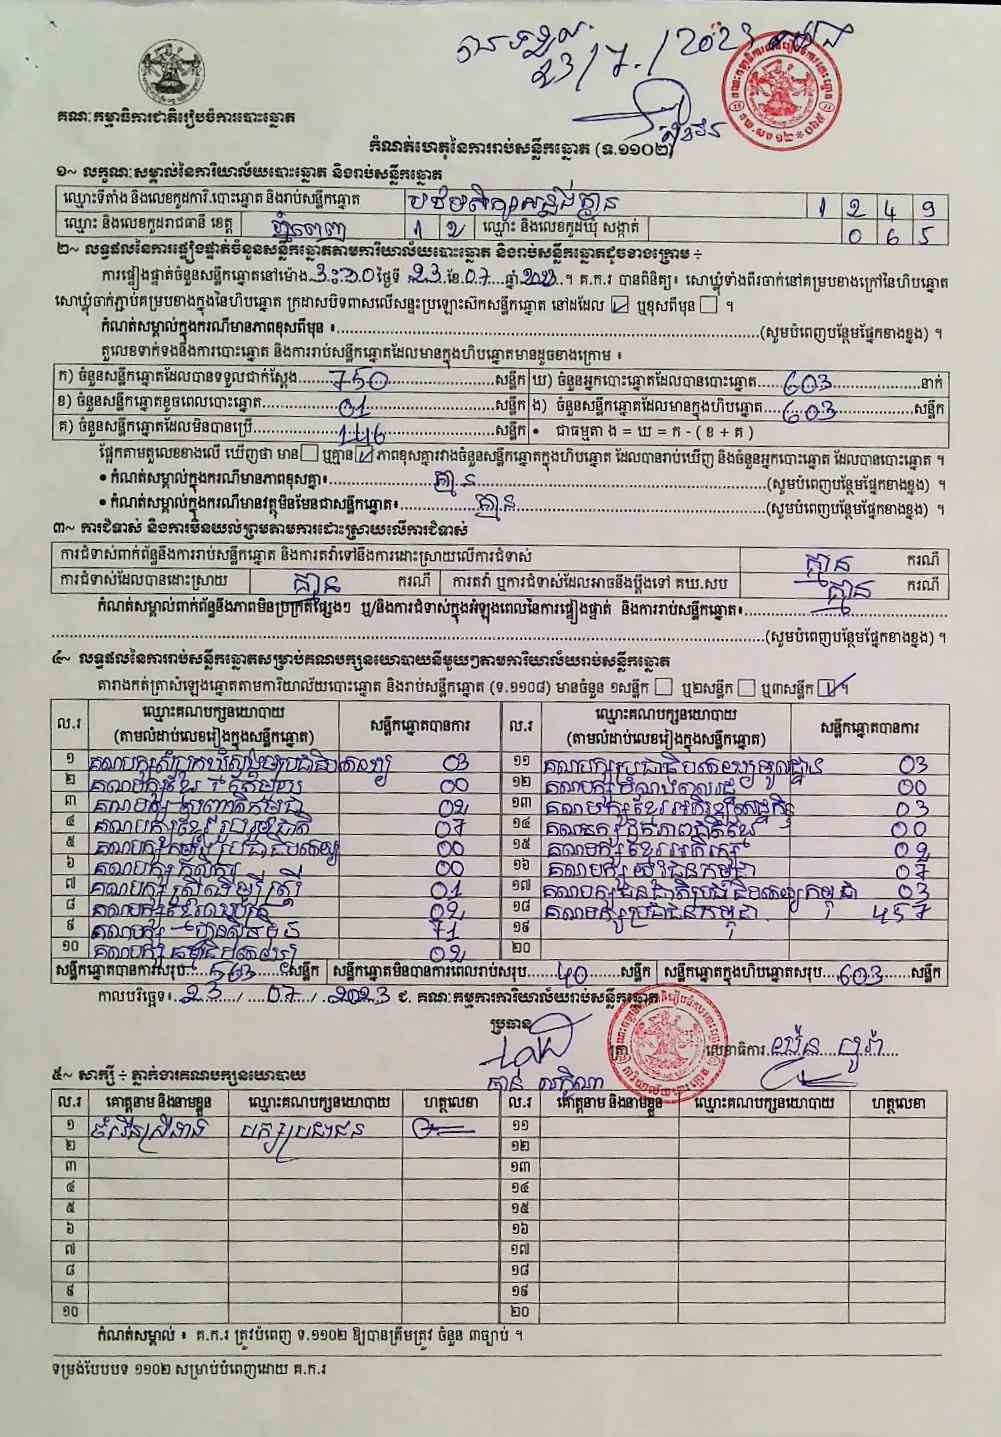 បានទទួល
23/7/2023
គណៈកម្មាធិការជាតិរៀបចំការបោះឆ្នោត
កំណត់ហេតុនៃការរាប់សន្លឹកឆ្នោត (ទ.១១០២)
១~ លក្ខណៈសម្គាល់នៃការិយាល័យបោះឆ្នោត និងរាប់សន្លឹកឆ្នោត
ឈ្មោះទីតាំង និងលេខកូដការិ.បោះឆ្នោត និងរាប់សន្លឹកឆ្នោត 1 2 4 9
ឈ្មោះ និងលេខកូដរាជធានី ខេត្ត ភ្នំពេញ 1 2 ឈ្មោះ និងលេខកូដឃុំ សង្កាត់ 0 6 5
២~ លទ្ធផលនៃការផ្ទៀងផ្ទាត់ចំនួនសន្លឹកឆ្នោតតាមការិយាល័យបោះឆ្នោត និងរាប់សន្លឹកឆ្នោតដូចខាងក្រោម ÷
ការផ្ទៀងផ្ទាត់ចំនួនសន្លឹកឆ្នោតនៅម៉ោង 3:30 ថ្ងៃទី 23 ខែ 07 ឆ្នាំ 2023 ។ គ.ក.រ បានពិនិត្យ៖ សោឃ្លុំទាំងពីរចាក់នៅគម្របខាងក្រៅនៃហិបឆ្នោត
សោឃ្លុំចាក់ភ្ជាប់គម្របខាងក្នុងនៃហិបឆ្នោត ក្រដាសបិទពាសលើសន្ទះប្រឡោះស៊កសន្លឹកឆ្នោត នៅដដែល ☑ ឬខុសពីមុន ☐ ។
កំណត់សម្គាល់ក្នុងករណីមានភាពខុសពីមុន ៖ (សូមបំពេញបន្ថែមផ្នែកខាងខ្នង) ។
តួលេខទាក់ទងនឹងការបោះឆ្នោត និងការរាប់សន្លឹកឆ្នោតដែលមានក្នុងហិបឆ្នោតមានដូចខាងក្រោម ៖
ក) ចំនួនសន្លឹកឆ្នោតដែលបានទទួលជាក់ស្តែង 750 សន្លឹក ឃ) ចំនួនអ្នកបោះឆ្នោតដែលបានបោះឆ្នោត 603 នាក់
ខ) ចំនួនសន្លឹកឆ្នោតខូចពេលបោះឆ្នោត 01 សន្លឹក ង) ចំនួនសន្លឹកឆ្នោតដែលមានក្នុងហិបឆ្នោត 603 សន្លឹក
គ) ចំនួនសន្លឹកឆ្នោតដែលមិនបានប្រើ 146 សន្លឹក • ជាធម្មតា ង = ឃ = ក - ( ខ + គ )
ផ្អែកតាមតួលេខខាងលើ ឃើញថា មាន ☐ ឬគ្មាន ☑ ភាពខុសគ្នារវាងចំនួនសន្លឹកឆ្នោតក្នុងហិបឆ្នោត ដែលបានរាប់ឃើញ និងចំនួនអ្នកបោះឆ្នោត ដែលបានបោះឆ្នោត ។
• កំណត់សម្គាល់ក្នុងករណីមានភាពខុសគ្នា៖ គ្មាន (សូមបំពេញបន្ថែមផ្នែកខាងខ្នង) ។
• កំណត់សម្គាល់ក្នុងករណីមានវត្ថុមិនមែនជាសន្លឹកឆ្នោត៖ គ្មាន (សូមបំពេញបន្ថែមផ្នែកខាងខ្នង) ។
៣~ ការជំទាស់ និងការមិនយល់ព្រមតាមការដោះស្រាយលើការជំទាស់
ការជំទាស់ពាក់ព័ន្ធនឹងការរាប់សន្លឹកឆ្នោត និងការតវ៉ាទៅនឹងការដោះស្រាយលើការជំទាស់ គ្មាន ករណី
ការជំទាស់ដែលបានដោះស្រាយ គ្មាន ករណី ការតវ៉ា ឬការជំទាស់ដែលអាចនឹងប្តឹងទៅ គឃ.សប គ្មាន ករណី
កំណត់សម្គាល់ពាក់ព័ន្ធនឹងភាពមិនប្រក្រតីផ្សេងៗ ឬ/និងការជំទាស់ក្នុងអំឡុងពេលនៃការផ្ទៀងផ្ទាត់ និងការរាប់សន្លឹកឆ្នោត៖
(សូមបំពេញបន្ថែមផ្នែកខាងខ្នង) ។
៤~ លទ្ធផលនៃការរាប់សន្លឹកឆ្នោតសម្រាប់គណបក្សនយោបាយនីមួយៗតាមការិយាល័យរាប់សន្លឹកឆ្នោត
តារាងកត់ត្រាសំឡេងឆ្នោតតាមការិយាល័យបោះឆ្នោត និងរាប់សន្លឹកឆ្នោត (ទ.១១០៨) មានចំនួន ១សន្លឹក ☐ ឬ២សន្លឹក ☐ ឬ៣សន្លឹក ☑ ។
ល.រ ឈ្មោះគណបក្សនយោបាយ (តាមលំដាប់លេខរៀងក្នុងសន្លឹកឆ្នោត) សន្លឹកឆ្នោតបានការ ល.រ ឈ្មោះគណបក្សនយោបាយ (តាមលំដាប់លេខរៀងក្នុងសន្លឹកឆ្នោត) សន្លឹកឆ្នោតបានការ
១ គណបក្សសំបុកឃ្មុំសង្គមប្រជាធិបតេយ្យ 03 ១១ គណបក្សប្រជាធិបតេយ្យមូលដ្ឋាន 03
២ គណបក្សខ្មែរ 00 ១២ គណបក្ស 00
៣ 02 ១៣ គណបក្សខ្មែរអភិវឌ្ឍន៍សេដ្ឋកិច្ច 03
៤ គណបក្សខ្មែររួបរួមជាតិ 07 ១៤ គណបក្សឯកភាពជាតិខ្មែរ 00
៥ គណបក្ស ប្រជាធិបតេយ្យ 00 ១៥ គណបក្សខ្មែរអភិរក្ស 02
៦ គណបក្សកសិករ 00 ១៦ គណបក្សយុវជនកម្ពុជា 07
៧ គណបក្សស្ត្រីដើម្បីស្ត្រី 01 ១៧ គណបក្សជនជាតិប្រជាធិបតេយ្យកម្ពុជា 03
៨ គណបក្សខ្មែរឈប់ក្រ 02 ១៨ គណបក្សប្រជាជនកម្ពុជា 457
៩ គណបក្សហ៊្វុនស៊ិនប៉ិច 71 ១៩
១០ គណបក្សធម្មាធិបតេយ្យ 02 ២០
សន្លឹកឆ្នោតបានការសរុប 563 សន្លឹក សន្លឹកឆ្នោតមិនបានការពេលរាប់សរុប 40 សន្លឹក សន្លឹកឆ្នោតក្នុងហិបឆ្នោតសរុប 603 សន្លឹក
កាលបរិច្ឆេទ៖ 23 / 07 / 2023 ជ. គណៈកម្មការការិយាល័យរាប់សន្លឹកឆ្នោត
ប្រធាន
ត្រា លេខាធិការ
៥~ សាក្សី ÷ ភ្នាក់ងារគណបក្សនយោបាយ
ល.រ គោត្តនាម និងនាមខ្លួន ឈ្មោះគណបក្សនយោបាយ ហត្ថលេខា ល.រ គោត្តនាម និងនាមខ្លួន ឈ្មោះគណបក្សនយោបាយ ហត្ថលេខា
១ បក្សប្រជាជន ១១
២ ១២
៣ ១៣
៤ ១៤
៥ ១៥
៦ ១៦
៧ ១៧
៨ ១៨
៩ ១៩
១០ ២០
កំណត់សម្គាល់ ៖ គ.ក.រ ត្រូវបំពេញ ទ.១១០២ ឱ្យបានត្រឹមត្រូវ ចំនួន ៣ច្បាប់ ។
ទម្រង់បែបបទ ១១០២ សម្រាប់បំពេញដោយ គ.ក.រ